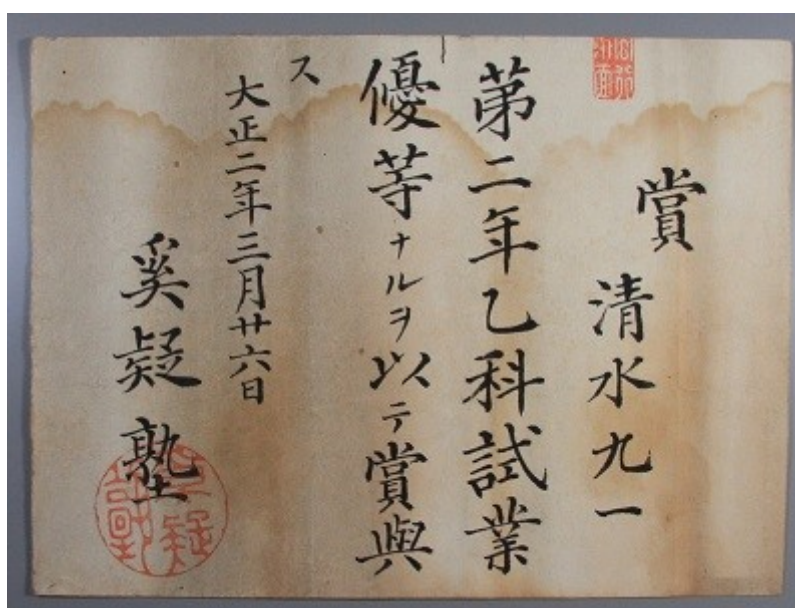 賞
清水九一
第二年乙科試業
優等ナルヲ以テ賞與
ス
大正二年三月廿六日
奚疑塾
奚疑塾印